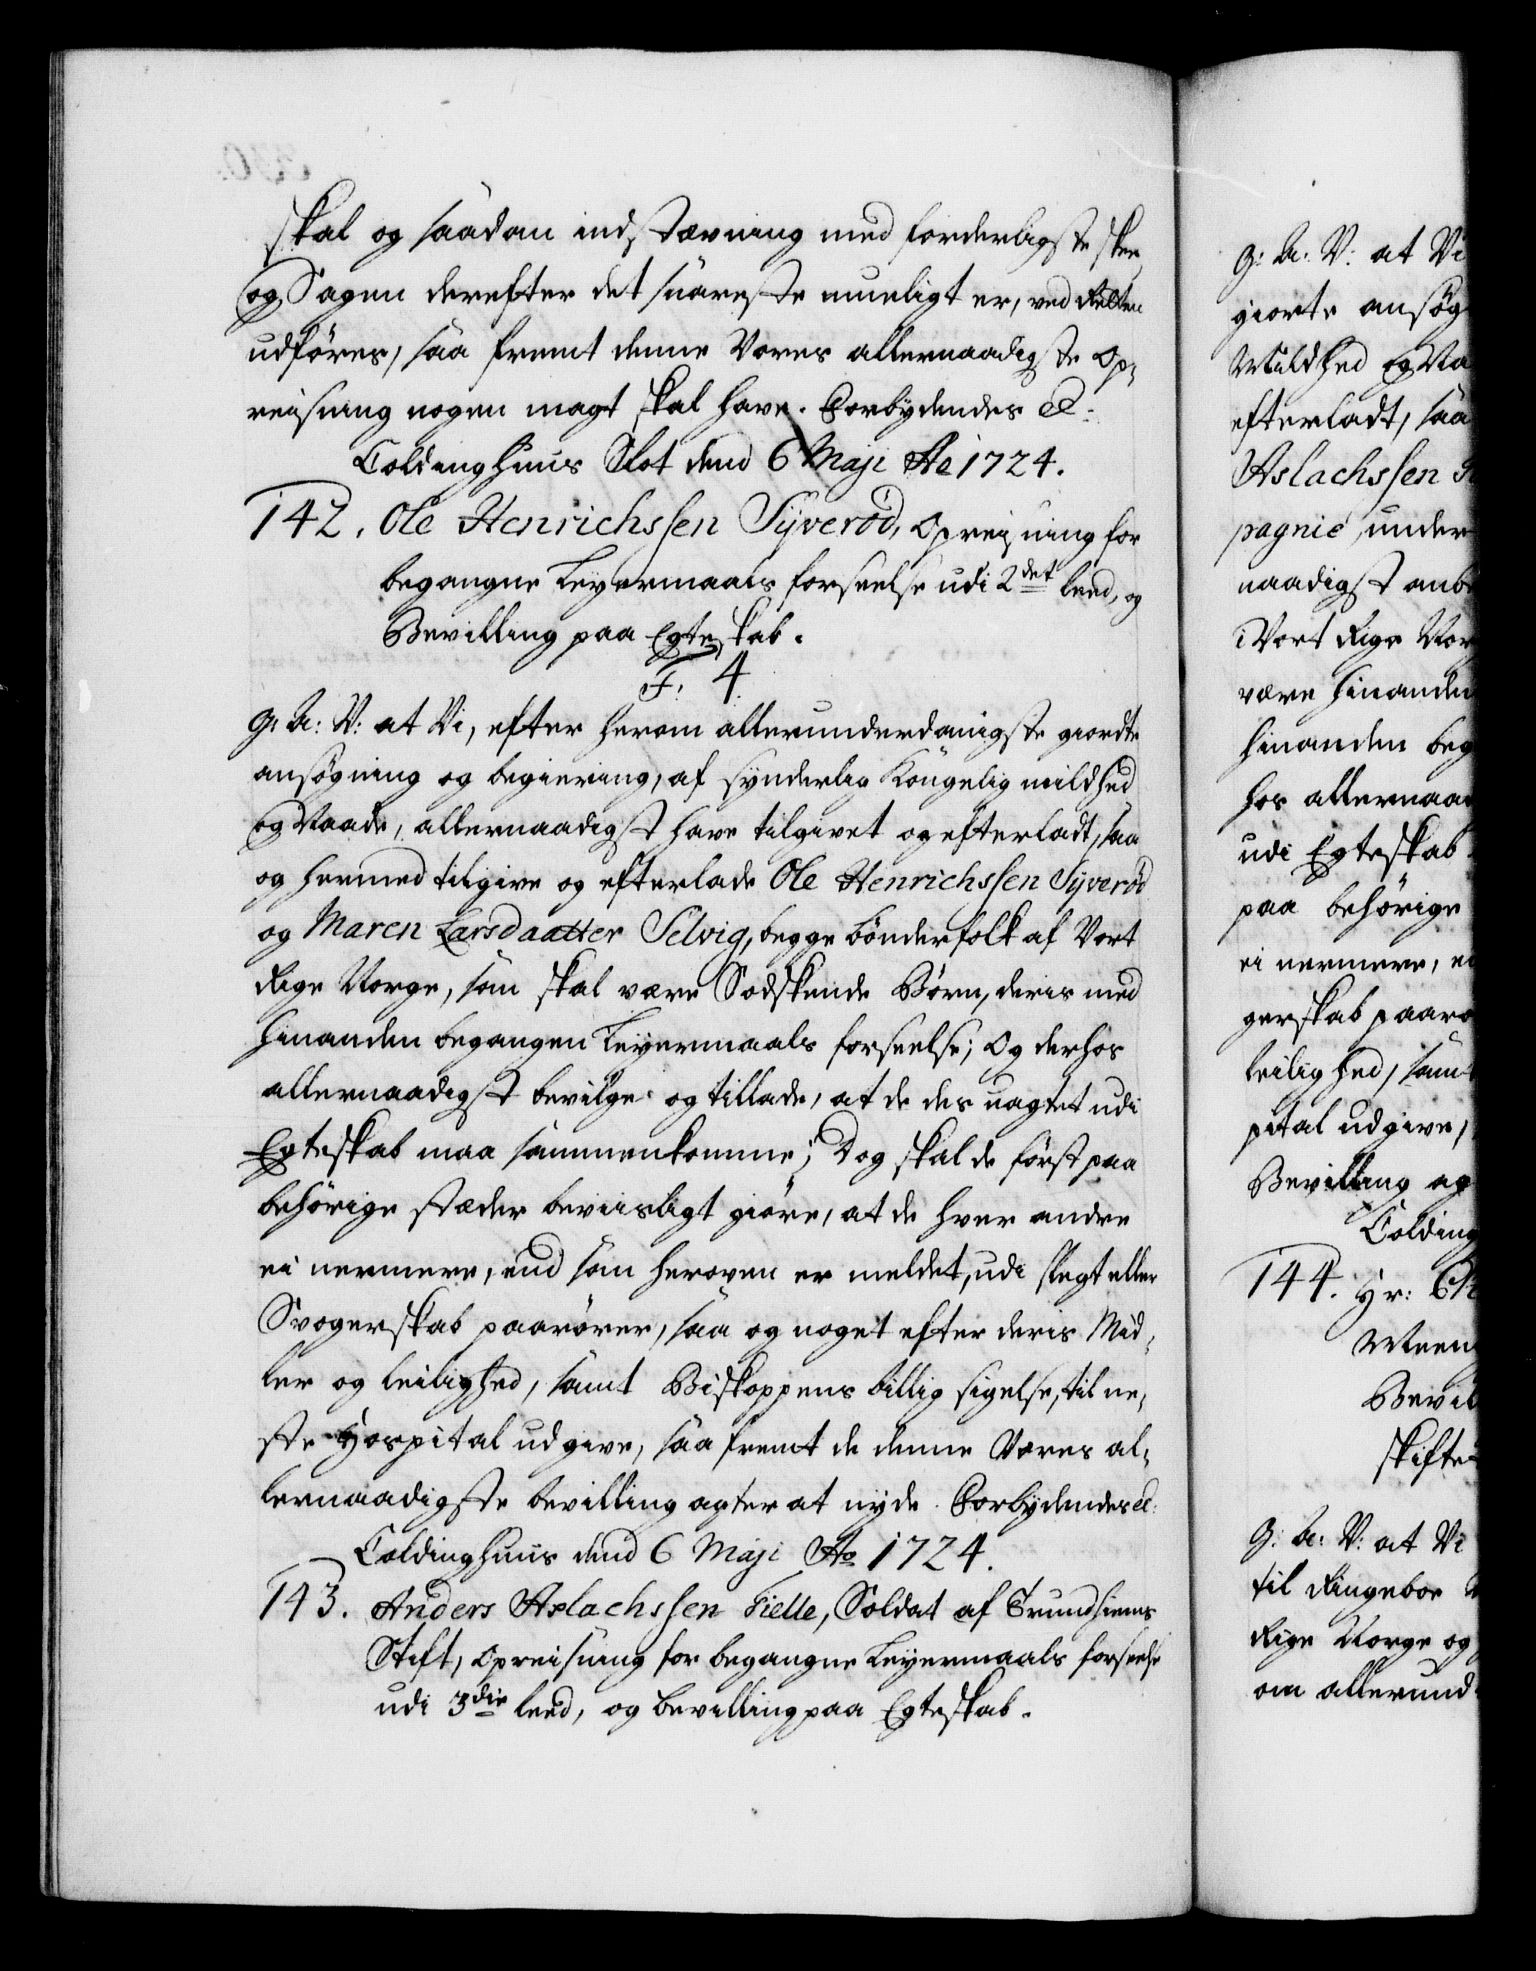 skal og saadan indstævning med forderligste skee,
og Sagen derefter det snareste mueligt er, ved Retten
udføres, saa fremt denne Vores allernaadigste Op-
reisning nogen magt skal have. Forbydendes &:
Coldinghuus Slot dend 6 Maji Ao 1724.
142. Ole Henrichssen Syverød, Opreisning for
begangne Leyermaals forseelse udi 2det leed, og
Bevilling paa Egteskab.
F: 4.
G: A: V: at Vi, efter herom allerunderdanigste giordte
ansøgning og begiering, af synderlig Kongelig mildhed
og Naade, allernaadigst have tilgivet og efterladt, saa
og hermed tilgive og efterlade Ole Henrichssen Syverød
og Maren Larsdaatter Selvig, begge bønderfolk af Vort
Rige Norge, som skal være Sødskende Børn, deris med
hinanden begangen Leyermaals forseelse; Og derhos
allernaadigst bevilge og tillade, at de des uagtet udi
Egteskab maa sammenkomme; Dog skal de først paa
behørige stæder beviisligt giøre, at de hver andre
ei nermere, end som heroven er meldet, udi slegt eller
Svogerskab paarører, saa og noget efter deris Mid-
ler og leilighed, samt Biskoppens billig sigelse, til ne-
ste Hospital udgive, saa fremt de denne Vores al-
lernaadigste bevilling agter at nyde. Forbydendes &:
Coldinghuus dend 6 Maji Ao 1724.
143. Anders Aslachssen Fielle, Soldat af Trundhiems
Stift, Opreisning for begangne Leyermaals forseelse
udi 3die leed, og bevilling paa Egteskab.
G: A: V: at Vi
giorte ansøg
Mildhed og Na
efterladt, saa
Aslachssen
pagnie, under
naadigst anb
i Vort Rige Nor
være hinanden
hinanden beg
hos allernaa
udi Egteskab
paa behørige
ei nermere, en
gerskab paarø
leilighed, samt
pital udgive,
Bevilling ag
Colding
144. Hr:
Meen
Bevil
skifte
G: A: V: at Vi
til Ringeboe
Rige Norge og
om allerund